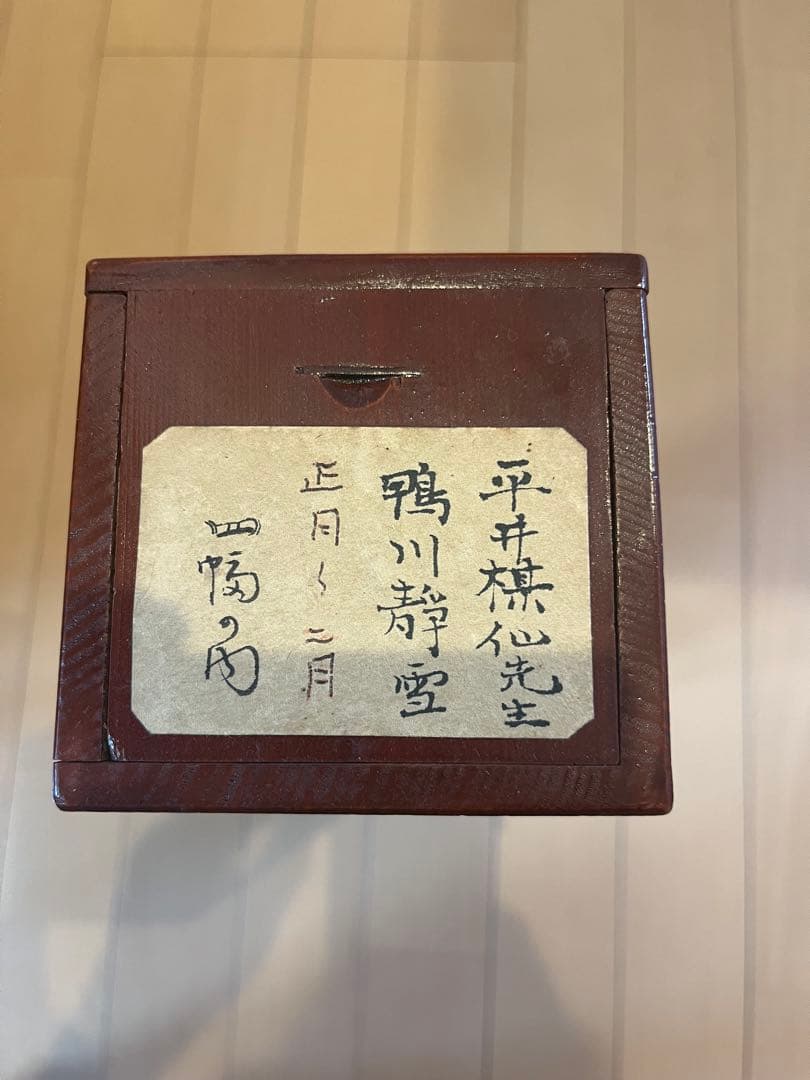 平井楳仙先生
鴨川靜雪
正月〜二月
四幅の内